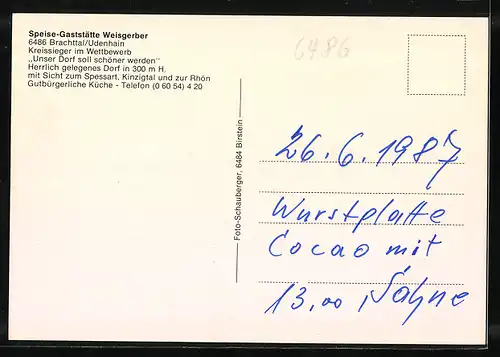 Speise-Gaststätte Weisgerber
6486 Brachttal/Udenhain
Kreissieger im Wettbewerb
„Unser Dorf soll schöner werden"
Herrlich gelegenes Dorf in 300 m H.
mit Sicht zum Spessart, Kinzigtal und zur Rhön
Gutbürgerliche Küche - Telefon (0 60 54) 4 20
6486
Foto-Schauberger, 6484 Birstein
26.6.1987
Wurstplatte
Cocao mit
13.00 Sahne